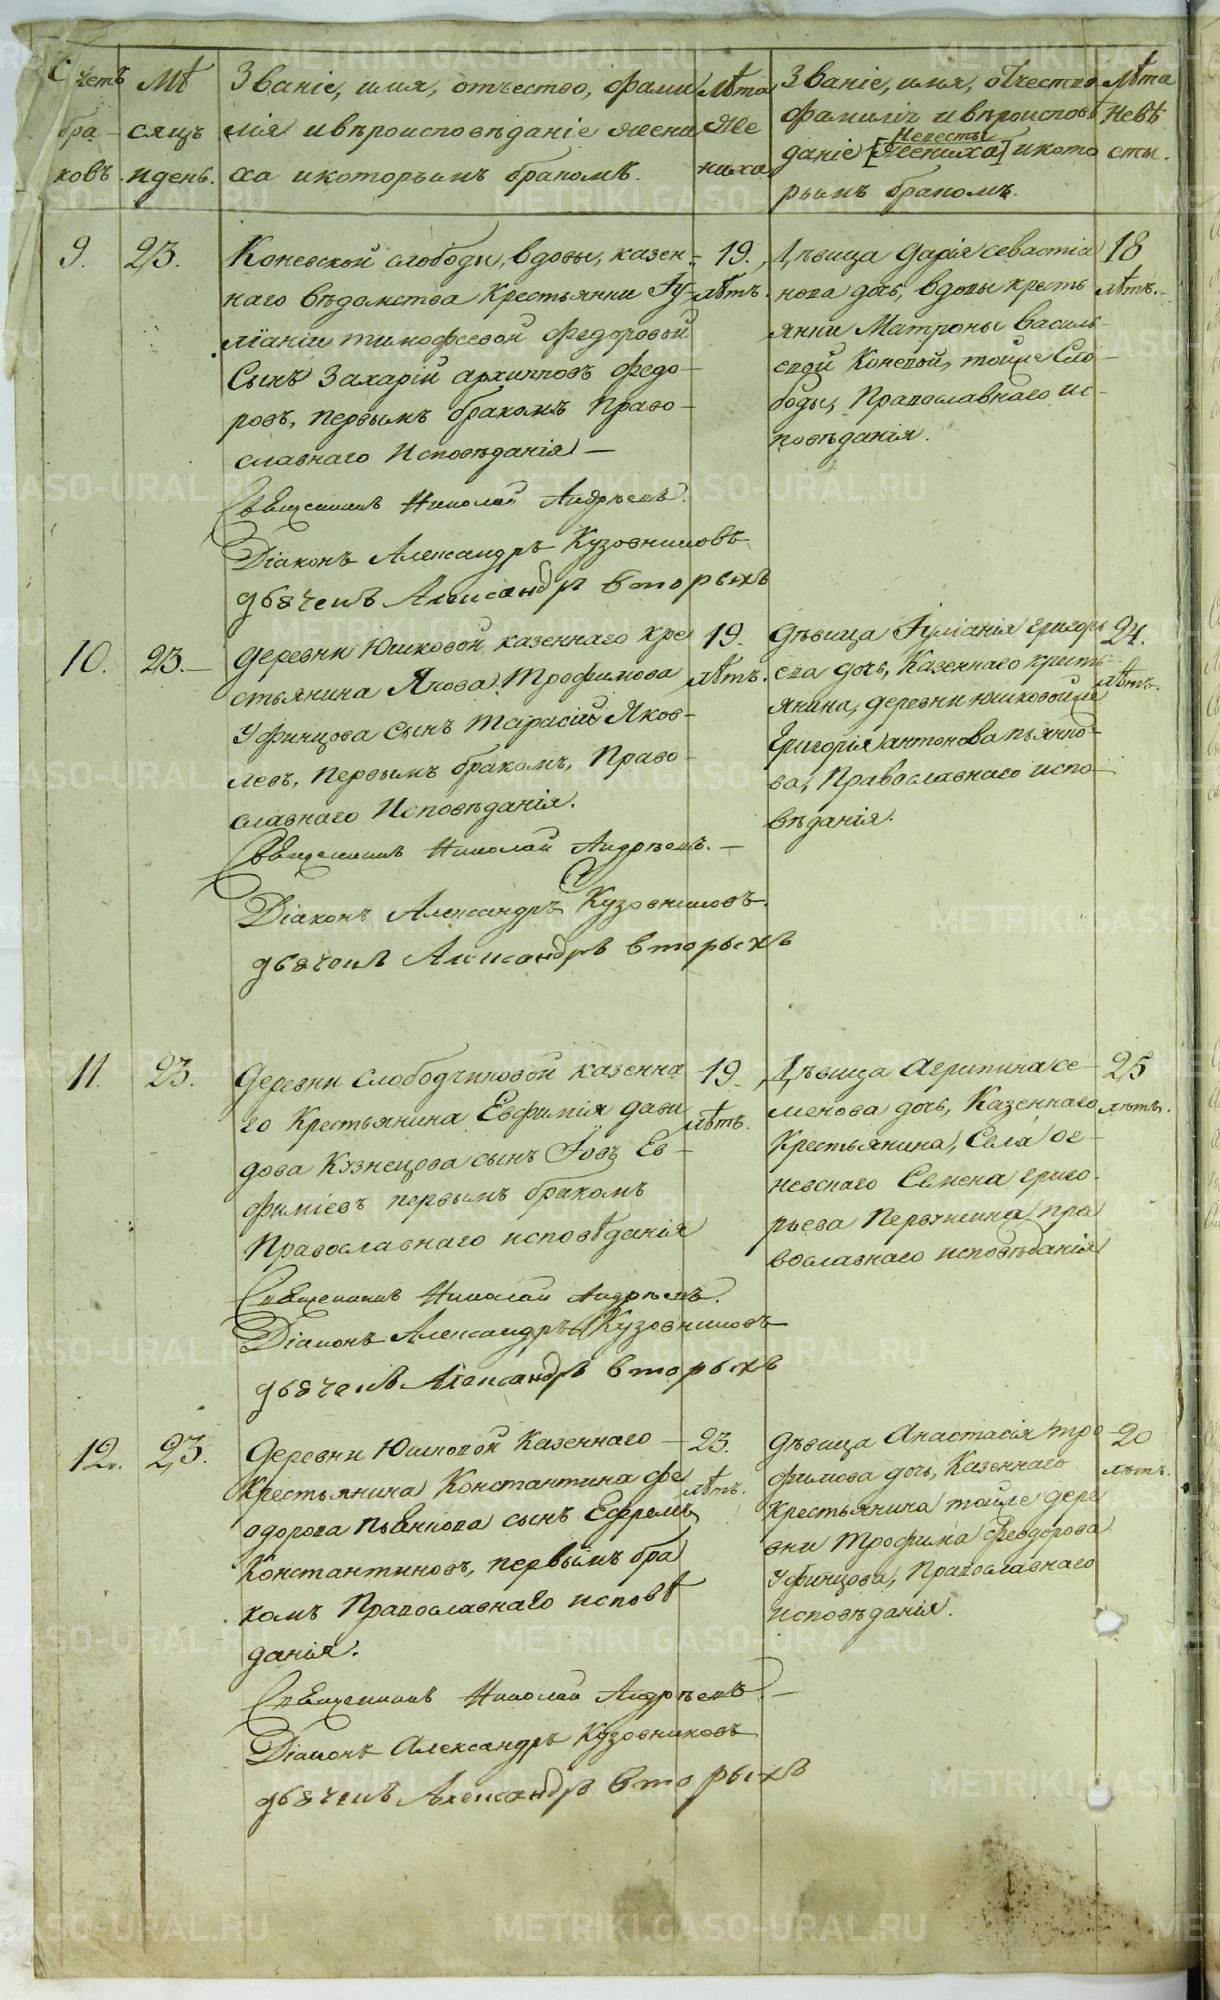 Счетъ бра- ковъ.
Мѣ сяцъ и день.
Званіе, имя, отчество, фами
лія и вѣроисповѣданіе жени
ха и которымъ бракомъ.
Лѣта же ниха
Званіе, имя, отчество
фамилія и вѣроисповѣ
Невесты
даніе [жениха] и кото
рымъ бракомъ.
Лѣта невѣ сты.
9. 23.
Коневской слободы, вдовы, казен-
наго вѣдомства крестьянки Іу-
лианіи Тимофеевой Федоровой
Сынъ Захарій Архиповъ Федо-
ровъ, первымъ бракомъ Право-
славнаго Исповѣданія —
Священникъ Николай Андрѣевъ.
Діаконъ Александръ Кузовниковъ
дьячекъ Александръ Вторыхъ
19. лѣтъ.
Дѣвица Дарія Севастіа
нова дочь, вдовы кресть
янки Матроны Василь-
евой Коневой, тойже Сло-
боды, Православнаго ис-
повѣданія.
18 лѣтъ.
10. 23.
Деревни Юшковой казеннаго кре
стьянина Якова Трофимова
Уфинцова сынъ Тарасій Яков-
левъ, первымъ бракомъ, Право-
славнаго Исповѣданія.
Священникъ Николай Андрѣевъ.
Діаконъ Александръ Кузовниковъ.
дьячекъ Александръ Вторыхъ
19. лѣтъ.
Дѣвица Іуліанія Григорь
ева дочь, Казеннаго кресть
янина, деревни Юшковой же
Григорія Антонова Пьянко-
ва, Православнаго испо-
вѣданія.
24. лѣтъ.
11. 23.
Деревни Слободчиковой казенна
го Крестьянина Евфимія Дави
дова Кузнецова сынъ Іовъ Ев-
фиміевъ первымъ бракомъ
Православнаго исповѣданія
Священникъ Николай Андрѣевъ.
Діаконъ Александръ Кузовниковъ
дьячекъ Александръ Вторыхъ
19. лѣтъ.
Дѣвица Агрипина Се-
менова дочь, Казеннаго
Крестьянина, Села Ог-
невскаго Семена Григо-
рьева Первухина пра
вославнаго исповѣданія
25 лѣтъ.
12. 23.
Деревни Юшковой Казеннаго
Крестьянина Константина Фе
одорова Пьянкова сынъ Ефремъ
Константиновъ, первымъ бра
комъ Православнаго исповѣ
данія.
Священникъ Николай Андрѣевъ.
Діаконъ Александръ Кузовниковъ
дьячекъ Александръ Вторыхъ
23. лѣтъ.
Дѣвица Анастасія Тро
фимова дочь, Казеннаго
Крестьянина тойже дере
вни Трофима Феодорова
Уфинцова, Православнаго
исповѣданія.
20 лѣтъ.
METRIKI.GASO-URAL.RU